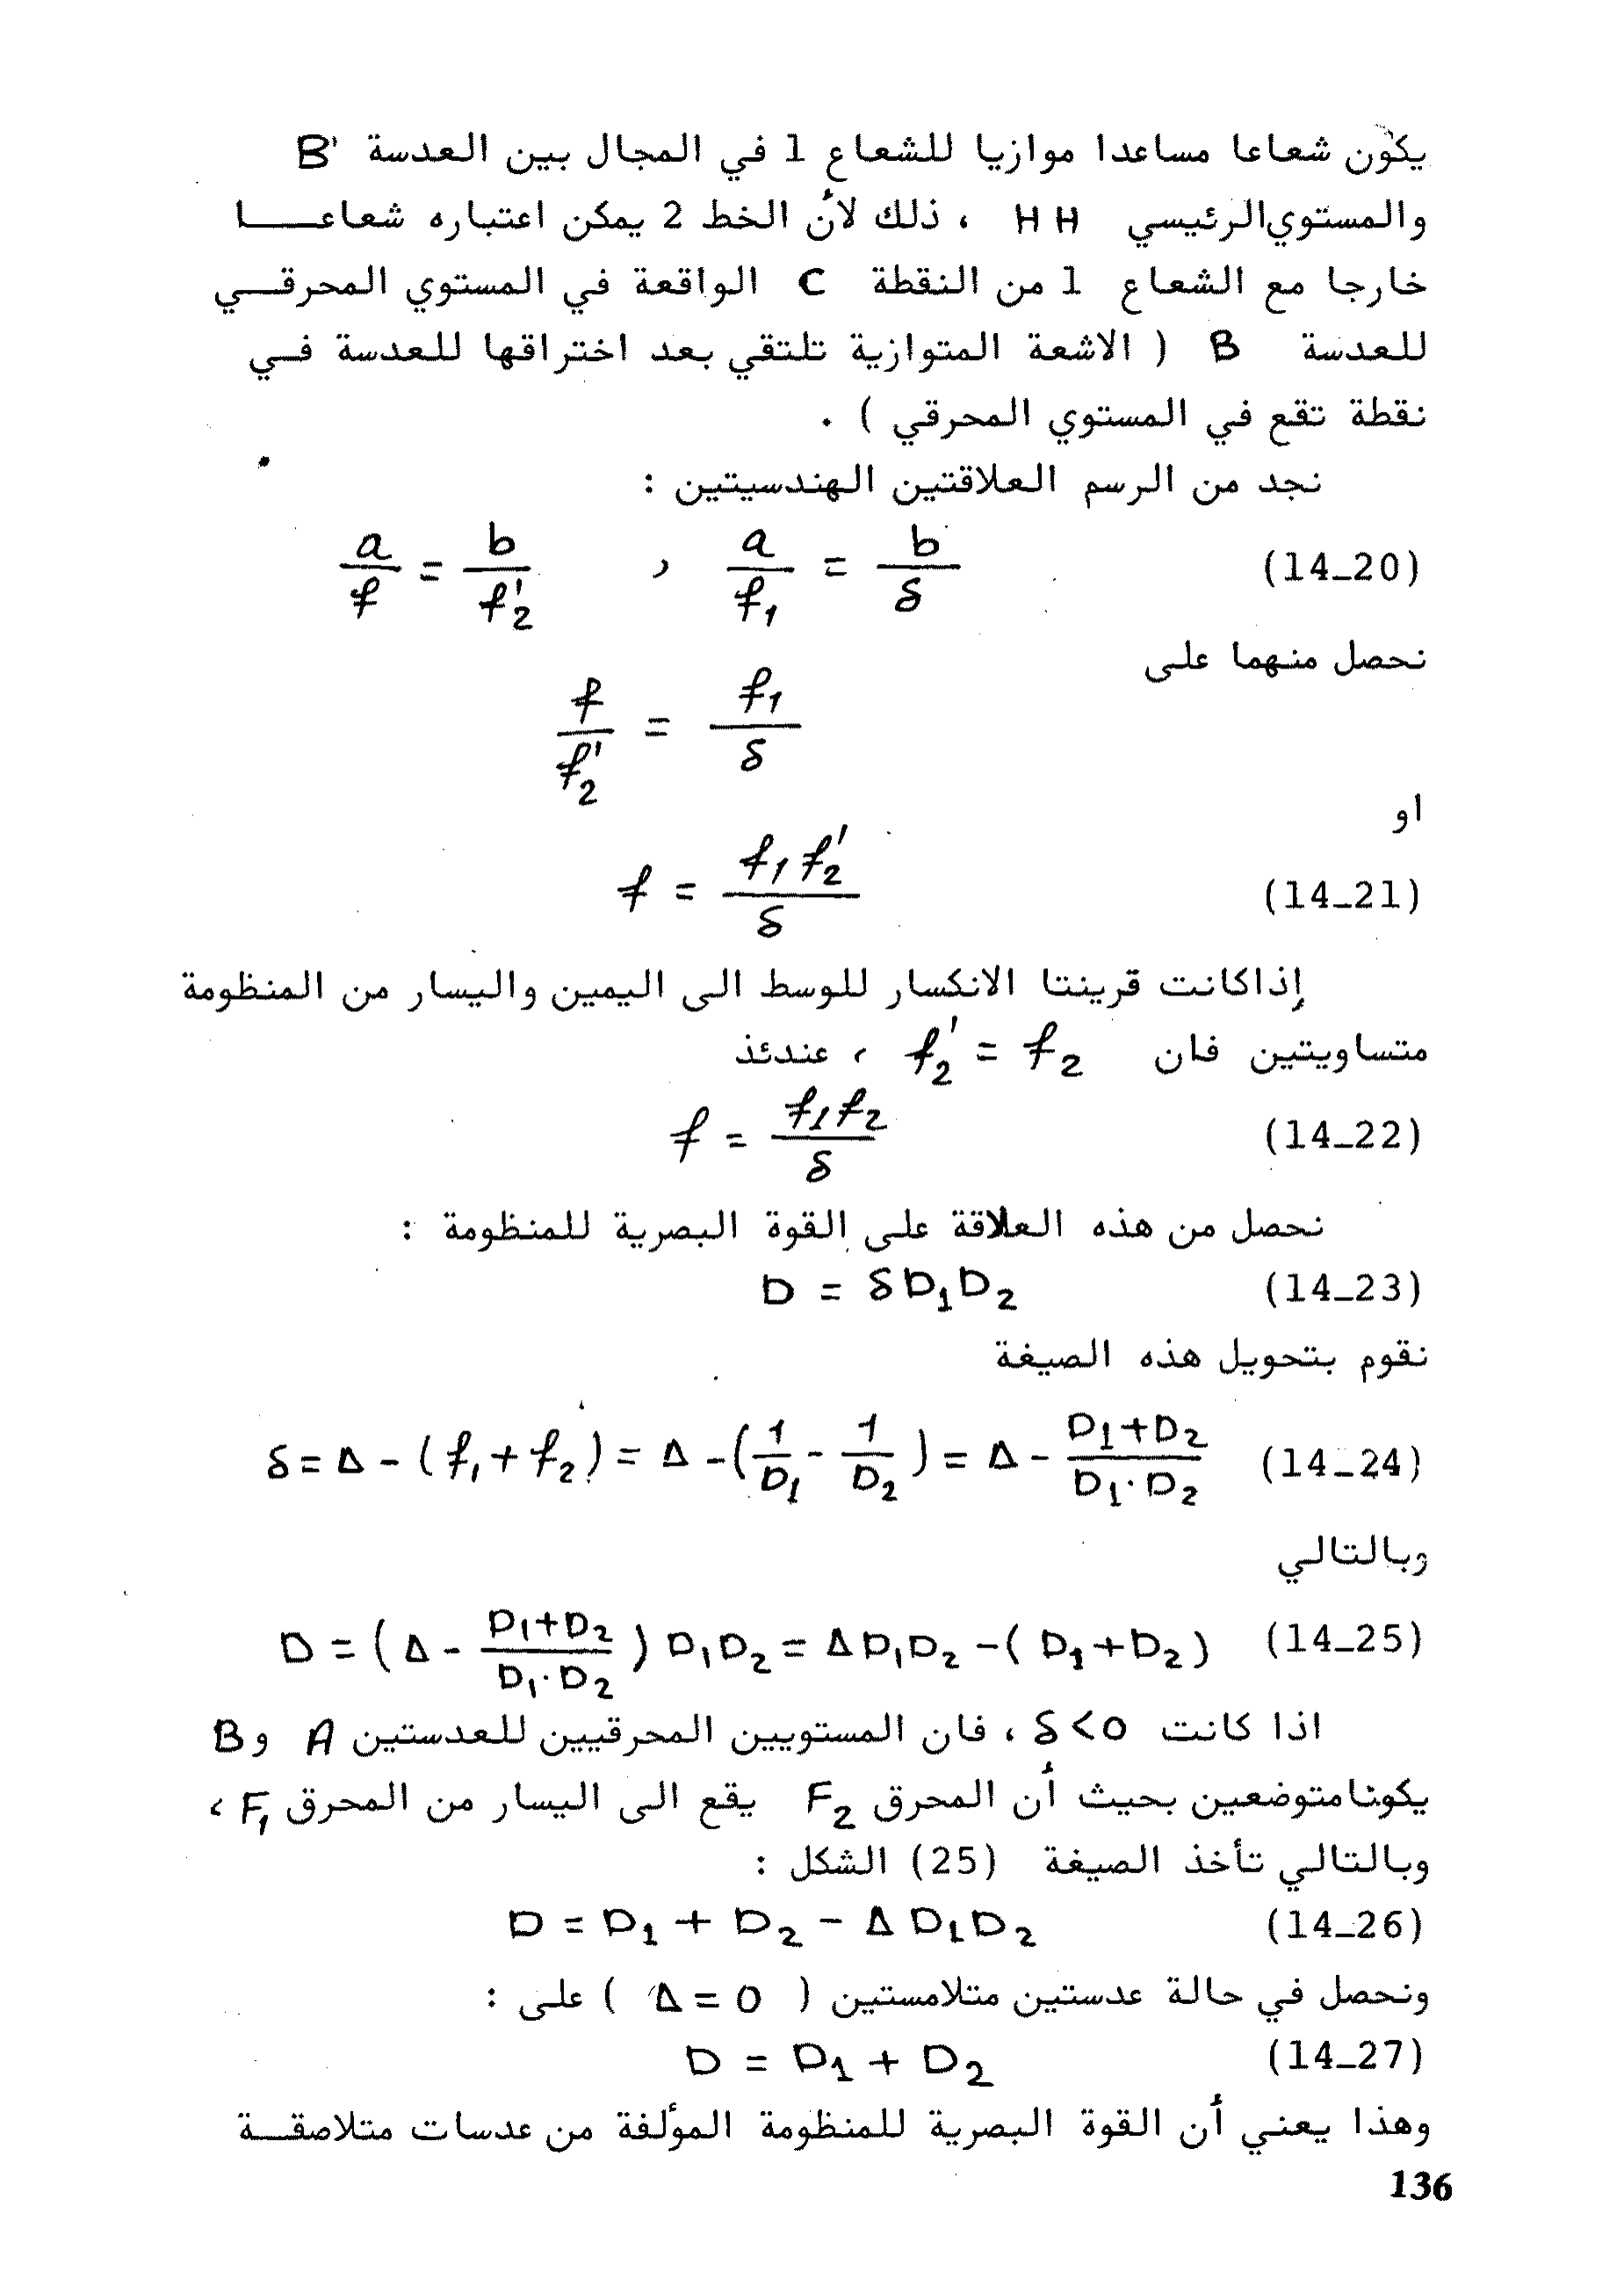 يكون شعاعا مساعدا موازيا للشعاع 1 في المجال بين العدسة B'
والمستوي الرئيسي H H ، ذلك لأن الخط 2 يمكن اعتباره شعاعـــا
خارجا مع الشعاع 1 من النقطة C الواقعة في المستوي المحرقــي
للعدسة B ( الاشعة المتوازية تلتقي بعد اختراقها للعدسة فــي
نقطة تقع في المستوي المحرقي ) .
نجد من الرسم العلاقتين الهندسيتين :
a/f = b/f'₂ , a/f₁ = b/δ (14_20)
نحصل منهما على
f/f'₂ = f₁/δ
او
f = f₁f'₂/δ (14_21)
إذاكانت قرينتا الانكسار للوسط الى اليمين واليسار من المنظومة
متساويتين فان f'₂ = f₂ ، عندئذ
f = f₁f₂/δ (14_22)
نحصل من هذه العلاقة على القوة البصرية للمنظومة :
D = δD₁D₂ (14_23)
نقوم بتحويل هذه الصيغة
δ = Δ - (f₁+f₂) = Δ - (1/D₁ - 1/D₂) = Δ - (D₁+D₂)/(D₁·D₂) (14_24)
وبالتالي
D = (Δ - (D₁+D₂)/(D₁·D₂)) D₁D₂ = ΔD₁D₂ - (D₁+D₂) (14_25)
اذا كانت δ<0 ، فان المستويين المحرقيين للعدستين A و B
يكونامتوضعين بحيث أن المحرق F₂ يقع الى اليسار من المحرق F₁ ،
وبالتالي تأخذ الصيغة (25) الشكل :
D = D₁ + D₂ - ΔD₁D₂ (14_26)
ونحصل في حالة عدستين متلامستين ( Δ = 0 ) على :
D = D₁ + D₂ (14_27)
وهذا يعني أن القوة البصرية للمنظومة المؤلفة من عدسات متلاصقــة
136